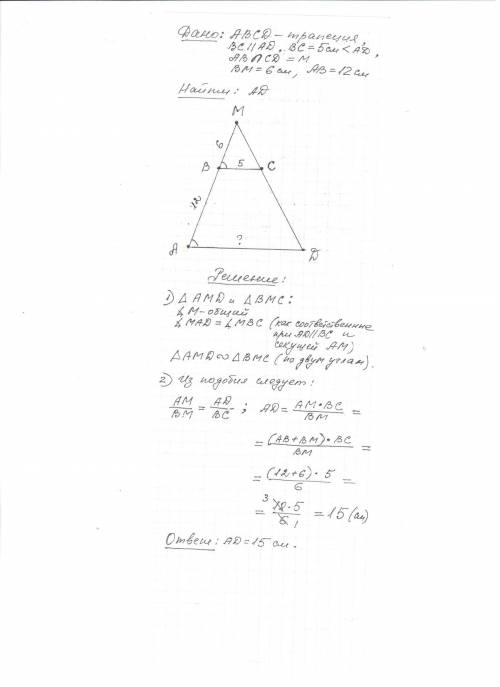 Дано: ABCD - трапеция,
BC || AD, BC = 5 см < AD,
AB ∩ CD = M
BM = 6 см, AB = 12 см
Найти: AD
M
6
B 5 C
12
A ? D
Решение:
1) △ AMD и △ BMC:
∡ M - общий
∡ MAD = ∡ MBC (как соответственные
при AD || BC и
секущей AM)
△ AMD ∾ △ BMC (по двум углам).
2) Из подобия следует:
AM/BM = AD/BC ; AD = AM · BC / BM =
= (AB + BM) · BC / BM =
= (12 + 6) · 5 / 6 =
= 3 18 · 5 / 6 1 = 15 (см)
Ответ: AD = 15 см.